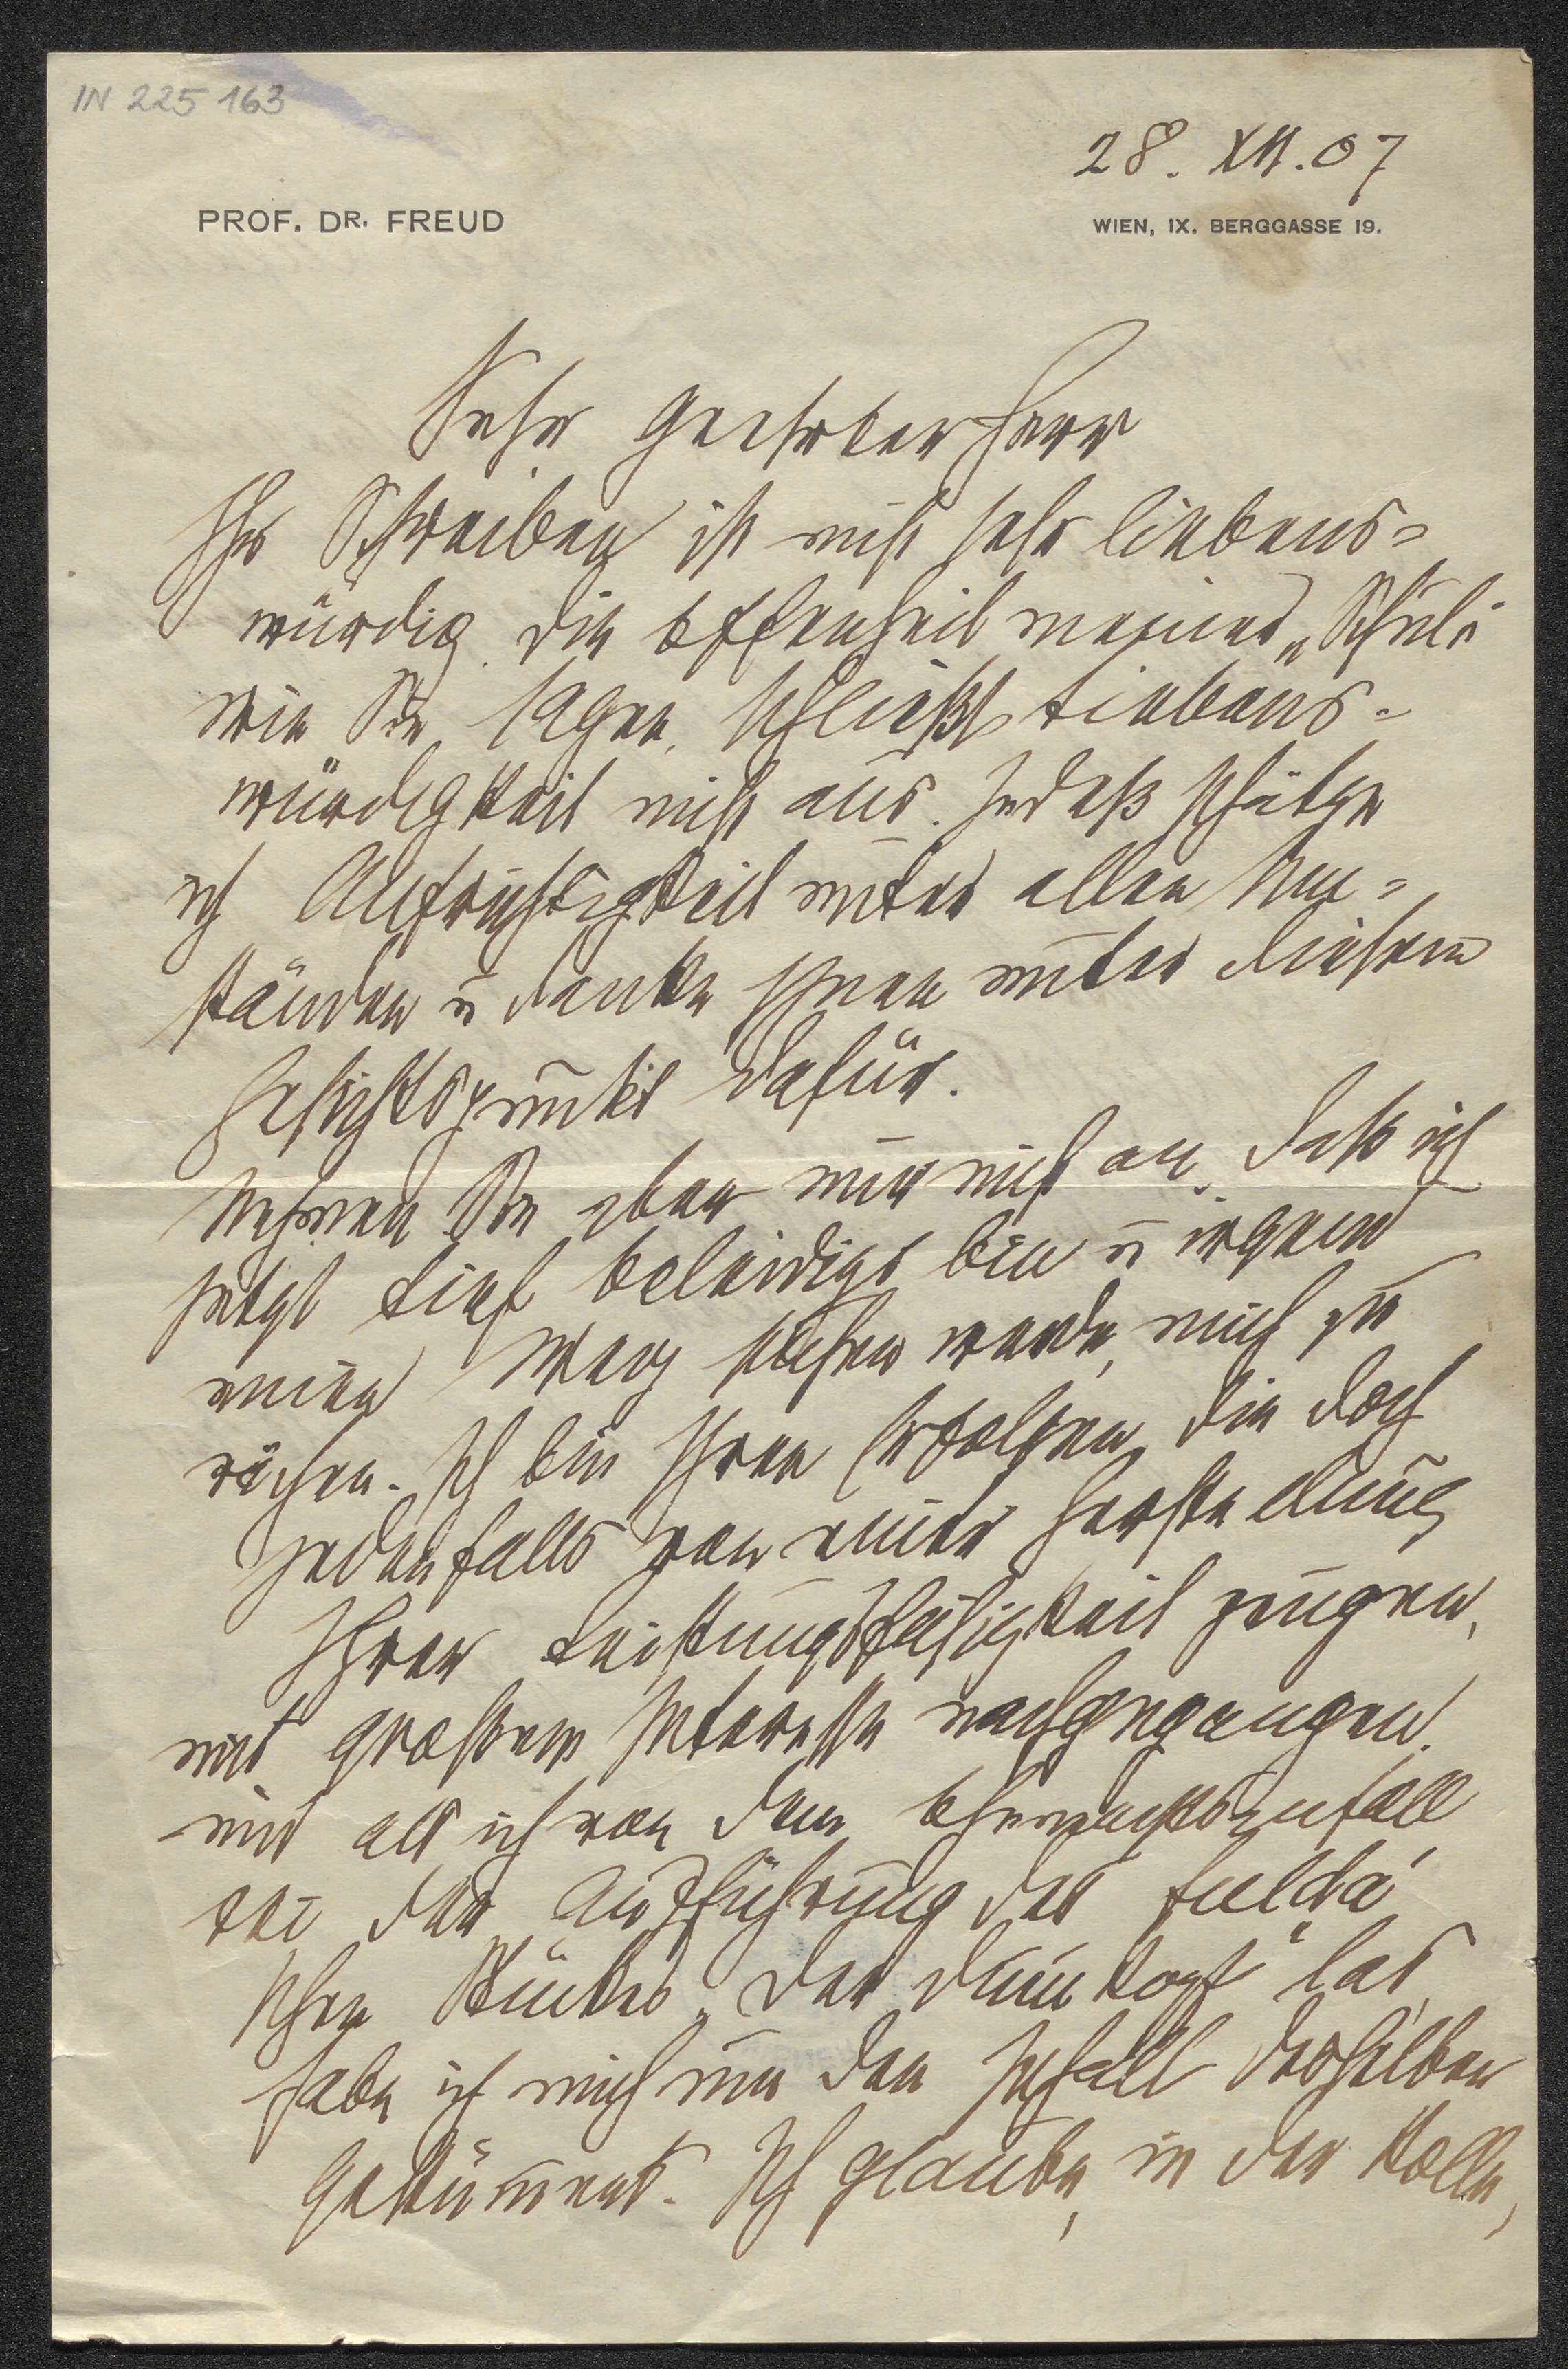 IN 225 163
28. XII. 07
PROF. DR. FREUD
WIEN, IX. BERGGASSE 19.
Sehr geehrter Herr
Ihr Schreiben ist nicht sehr liebens=
würdig. Die Offenheit meiner „Schule
wie Sie sagen, schließt Liebens=
würdigkeit nicht aus. Indeß schätze
ich Aufrichtigkeit unter allen Um=
ständen u danke Ihnen unter diesem
Gesichtspunkt dafür.
Nehmen Sie aber nur nicht an, daß ich
jetzt tief beleidigt bin u irgend
einen Weg suchen werde, mich zu
rächen. Ich bin Ihren Erfolgen, die doch
jedenfalls von einer Herstellung
Ihrer Leistungsfähigkeit zeugen,
mit großem Interesse nachgegangen.
und als ich von dem Ohnmachtsanfall
bei der Aufführung des Fulda'
schen Stückes „Der Dummkopf" las,
habe ich mich um den Inhalt desselben
gekümmert. Ich glaube, in der Rolle,